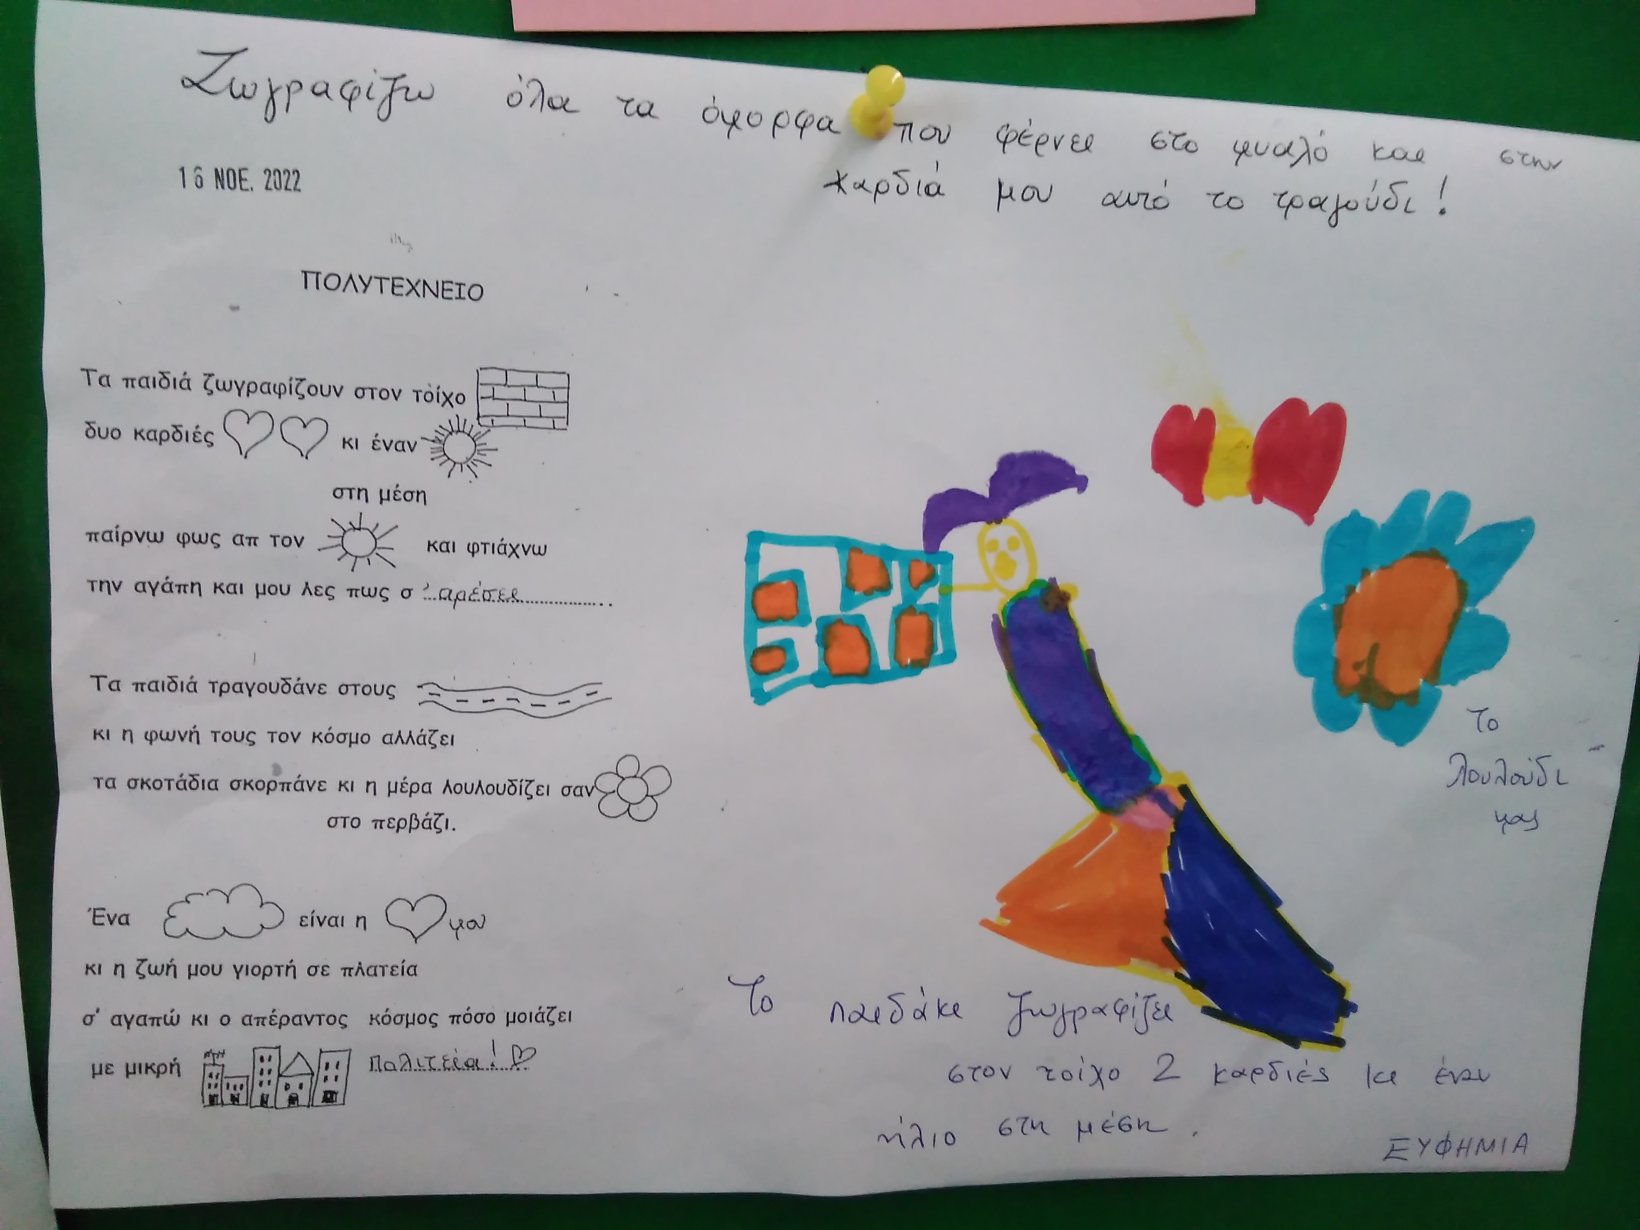 Ζωγραφίζω όλα τα όμορφα που φέρνει στο μυαλό και στην
καρδιά μου αυτό το τραγούδι!
16 ΝΟΕ. 2022
ΠΟΛΥΤΕΧΝΕΙΟ
Τα παιδιά ζωγραφίζουν στον τοίχο
δυο καρδιές κι έναν
στη μέση
παίρνω φως απ τον και φτιάχνω
την αγάπη και μου λες πως σ'αρέσει
Τα παιδιά τραγουδάνε στους
κι η φωνή τους τον κόσμο αλλάζει
τα σκοτάδια σκορπάνε κι η μέρα λουλουδίζει σαν
στο περβάζι.
Ένα είναι η μου
κι η ζωή μου γιορτή σε πλατεία
σ' αγαπώ κι ο απέραντος κόσμος πόσο μοιάζει
με μικρή Πολιτεία!
Το
λουλούδι
μας
Το παιδάκι ζωγραφίζει
στον τοίχο 2 καρδιές κι έναν
ήλιο στη μέση.
ΕΥΦΗΜΙΑ